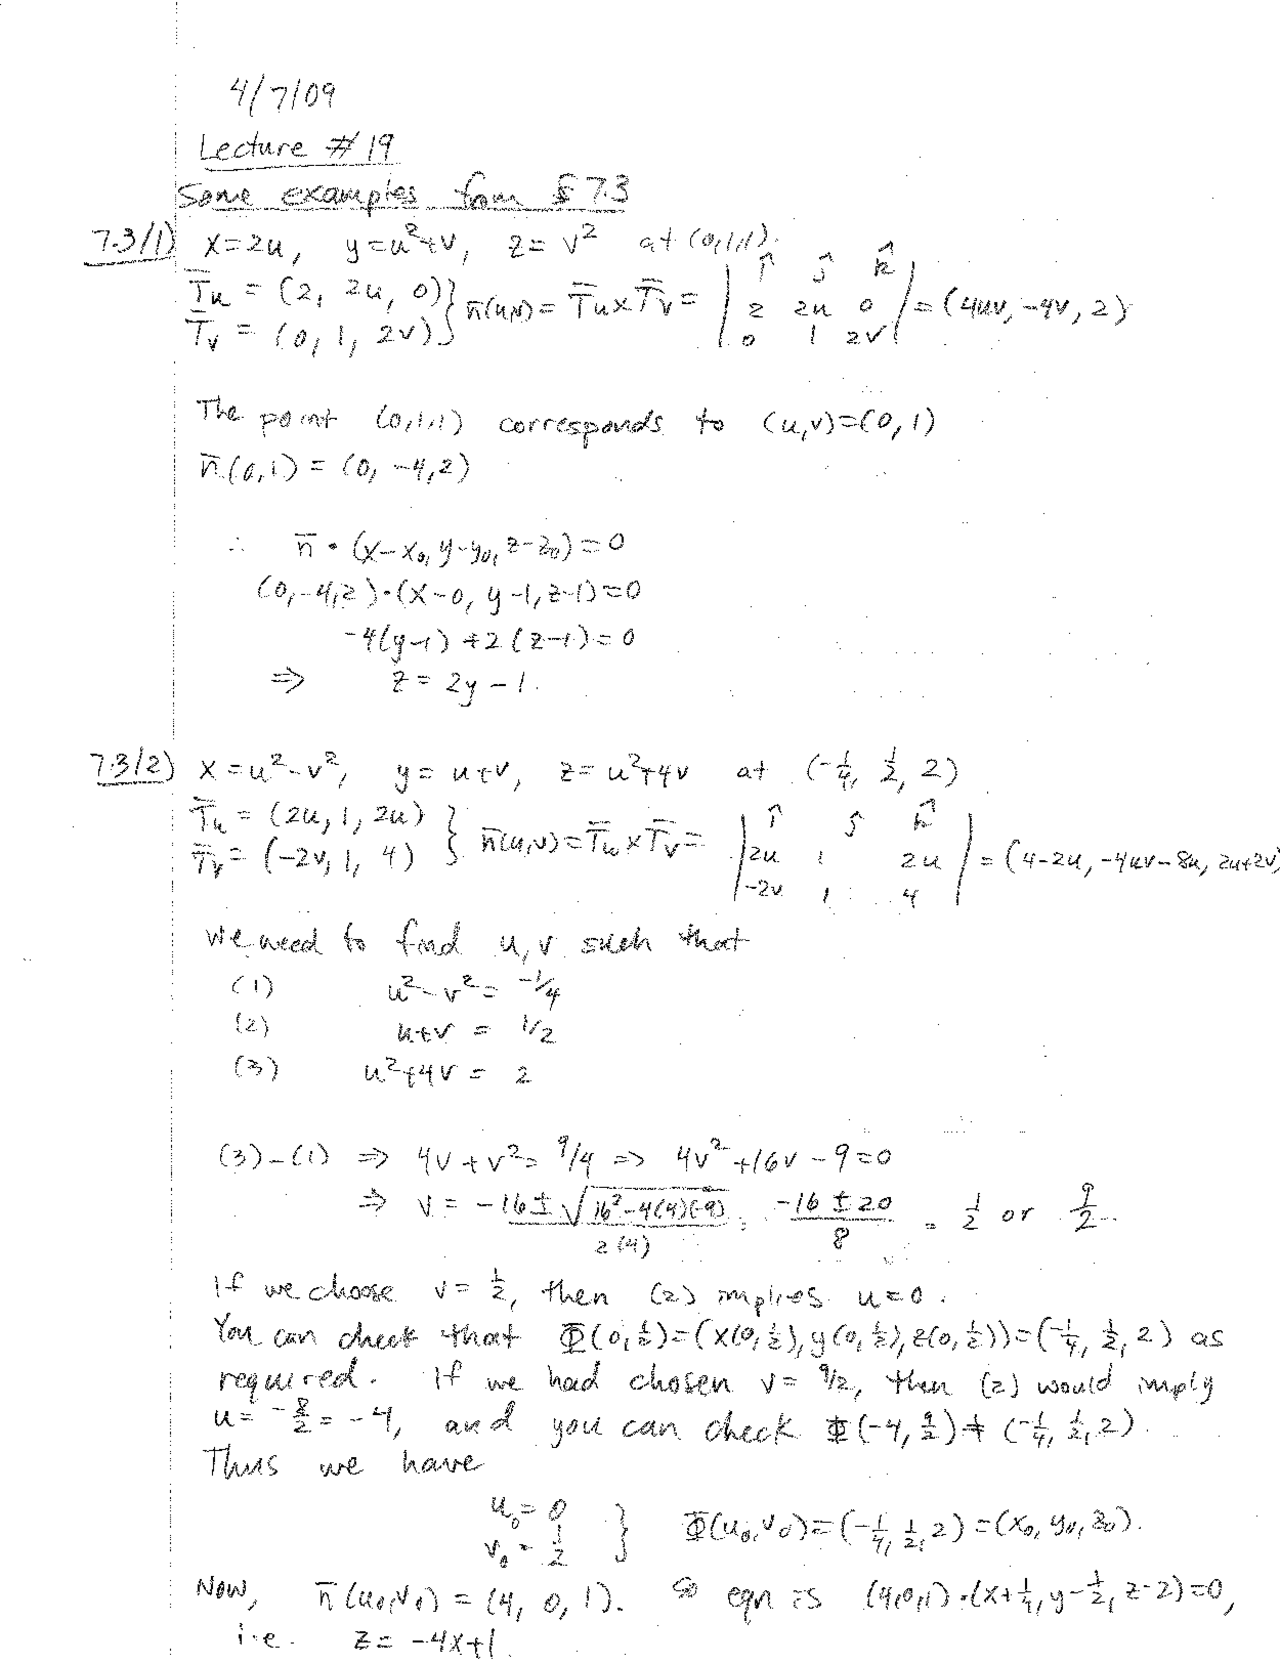 4/7/09
Lecture #19
Some examples from § 7.3
7.3/1) x=2u, y=u²+v, z=v² at (0,1,1).
T̄u = (2, 2u, 0)
T̄v = (0, 1, 2v) } n̄(u,v) = T̄u×T̄v = | î ĵ k̂ ; 2 2u 0 ; 0 1 2v | = (4uv, -4v, 2)
The point (0,1,1) corresponds to (u,v)=(0,1)
n̄(0,1) = (0, -4, 2)
∴ n̄ • (x-x₀, y-y₀, z-z₀) = 0
(0,-4,2)•(x-0, y-1, z-1)=0
-4(y-1)+2(z-1)=0
⇒ z = 2y-1.
7.3/2) x=u²-v², y=u+v, z=u²+4v at (-1/4, 1/2, 2)
T̄u = (2u, 1, 2u)
T̄v = (-2v, 1, 4) } n̄(u,v) = T̄u×T̄v = | î ĵ k̂ ; 2u 1 2u ; -2v 1 4 | = (4-2u, -4uv-8u, 2u+2v)
We need to find u,v such that
(1) u²-v² = -1/4
(2) u+v = 1/2
(3) u²+4v = 2
(3)-(1) ⇒ 4v+v² = 9/4 ⇒ 4v²+16v-9=0
⇒ v = -16±√(16²-4(4)(-9)) / 2(4) = (-16±20)/8 = 1/2 or 9/2.
If we choose v=1/2, then (2) implies u=0.
You can check that Φ(0,1/2)=(x(0,1/2),y(0,1/2),z(0,1/2))=(-1/4, 1/2, 2) as
required. If we had chosen v=9/2, then (2) would imply
u= -8/2 = -4, and you can check Φ(-4,9/2)≠(-1/4, 1/2, 2).
Thus we have
u₀=0
v₀=1/2 } Φ(u₀,v₀)=(-1/4, 1/2, 2)=(x₀,y₀,z₀).
Now, n̄(u₀,v₀) = (4, 0, 1). So eqn is (4,0,1)•(x+1/4, y-1/2, z-2)=0,
i.e. z = -4x+1